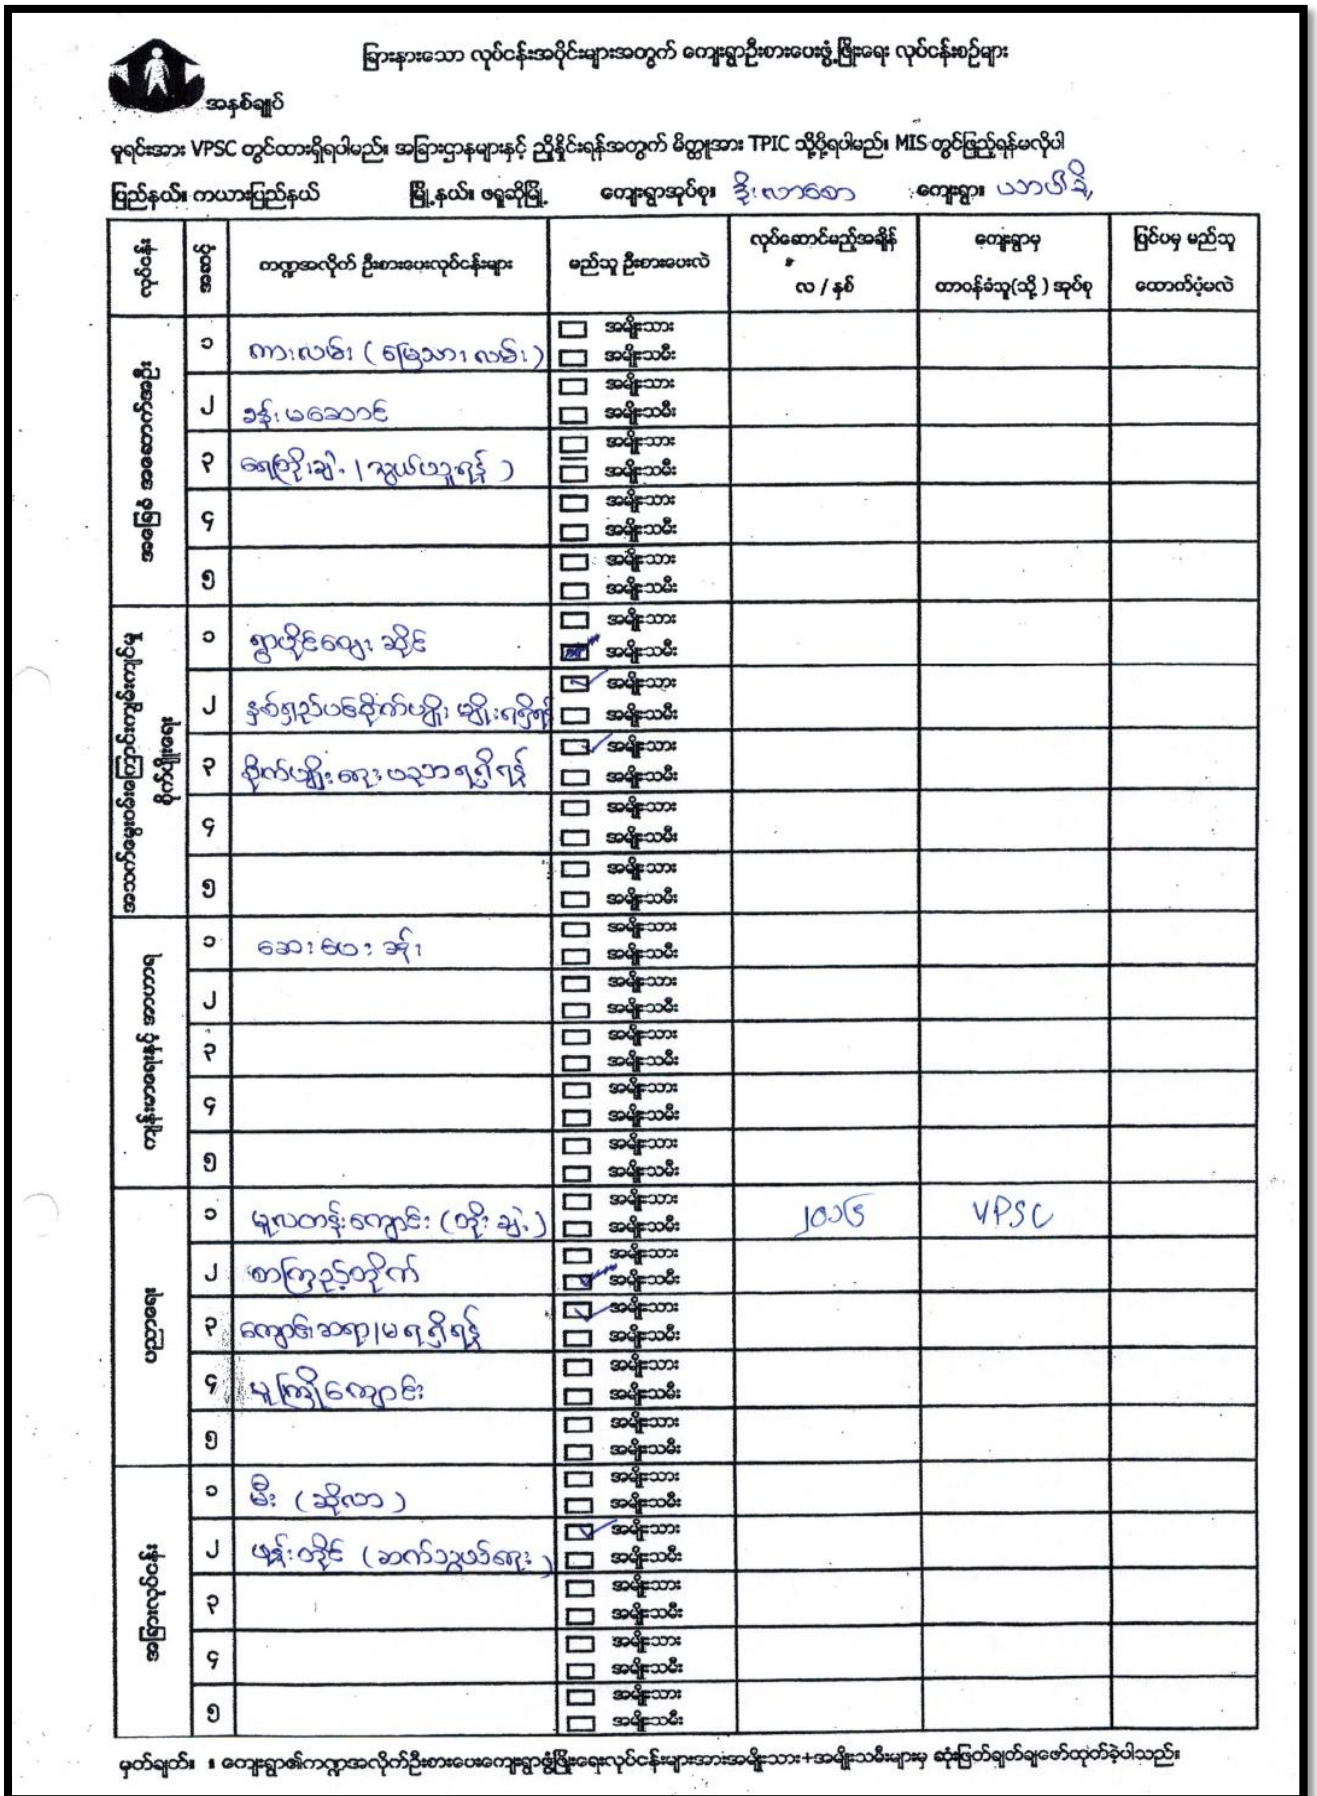 ခြားနားသော လုပ်ငန်းအပိုင်းများအတွက် ကျေးရွာဦးစားပေးဖွံ့ဖြိုးရေး လုပ်ငန်းစဉ်များ
အနှစ်ချုပ်
မူရင်းအား VPSC တွင်ထားရှိရပါမည်။ အခြားဌာနများနှင့် ညှိနှိုင်းရန်အတွက် မိတ္တူအား TPIC သို့ပို့ရပါမည်။ MIS တွင်ဖြည့်ရန်မလိုပါ
ပြည်နယ်။ ကယားပြည်နယ် မြို့နယ်။ ဖရူဆိုမြို့ ကျေးရွာအုပ်စု။ ဒိုးလာစော ကျေးရွာ။
လုပ်ငန်း အဆင့် ကဏ္ဍအလိုက် ဦးစားပေးလုပ်ငန်းများ မည်သူ ဦးစားပေးလဲ လုပ်ဆောင်မည့်အချိန် လ / နှစ် ကျေးရွာမှ တာဝန်ခံသူ(သို့) အုပ်စု ပြင်ပမှ မည်သူ ထောက်ပံ့မလဲ
အခြေခံ အဆောက်အဦး
၁ ကားလမ်း (မြေသားလမ်း) အမျိုးသား
အမျိုးသမီး
၂ ခန်းမဆောင် အမျိုးသား
အမျိုးသမီး
၃ ရေတိုးချဲ့ (သွယ်ယူရန်) အမျိုးသား
အမျိုးသမီး
၄ အမျိုးသား
အမျိုးသမီး
၅ အမျိုးသား
အမျိုးသမီး
အသက်မွေးဝမ်းကျောင်းကျွမ်းကျင်မှု စိုက်ပျိုးရေး
၁ ရွာပိုင်ဈေးဆိုင် အမျိုးသား
အမျိုးသမီး
၂ နှစ်ရှည်ပင်စိုက်ပျိုး မျိုးရရှိရန် အမျိုးသား
အမျိုးသမီး
၃ စိုက်ပျိုးရေးပညာရရှိရန် အမျိုးသား
အမျိုးသမီး
၄ အမျိုးသား
အမျိုးသမီး
၅ အမျိုးသား
အမျိုးသမီး
ကျန်းမာရေးနှင့် အာဟာရ
၁ ဆေးပေးခန်း အမျိုးသား
အမျိုးသမီး
၂ အမျိုးသား
အမျိုးသမီး
၃ အမျိုးသား
အမျိုးသမီး
၄ အမျိုးသား
အမျိုးသမီး
၅ အမျိုးသား
အမျိုးသမီး
ပညာရေး
၁ မူလတန်းကျောင်း (တိုးချဲ့) အမျိုးသား
အမျိုးသမီး ၂၀၁၆ VPSC
၂ စာကြည့်တိုက် အမျိုးသား
အမျိုးသမီး
၃ ကျောင်းဆရာ/မ ရရှိရန် အမျိုးသား
အမျိုးသမီး
၄ မူကြိုကျောင်း အမျိုးသား
အမျိုးသမီး
၅ အမျိုးသား
အမျိုးသမီး
အခြားလုပ်ငန်း
၁ မီး (ဆိုလာ) အမျိုးသား
အမျိုးသမီး
၂ ဖုန်းတိုင် (ဆက်သွယ်ရေး) အမျိုးသား
အမျိုးသမီး
၃ အမျိုးသား
အမျိုးသမီး
၄ အမျိုးသား
အမျိုးသမီး
၅ အမျိုးသား
အမျိုးသမီး
မှတ်ချက်။ ။ ကျေးရွာ၏ကဏ္ဍအလိုက်ဦးစားပေးကျေးရွာဖွံ့ဖြိုးရေးလုပ်ငန်းများအားအမျိုးသား+အမျိုးသမီးများမှ ဆုံးဖြတ်ချတ်ချဖော်ထုတ်ခဲ့ပါသည်။